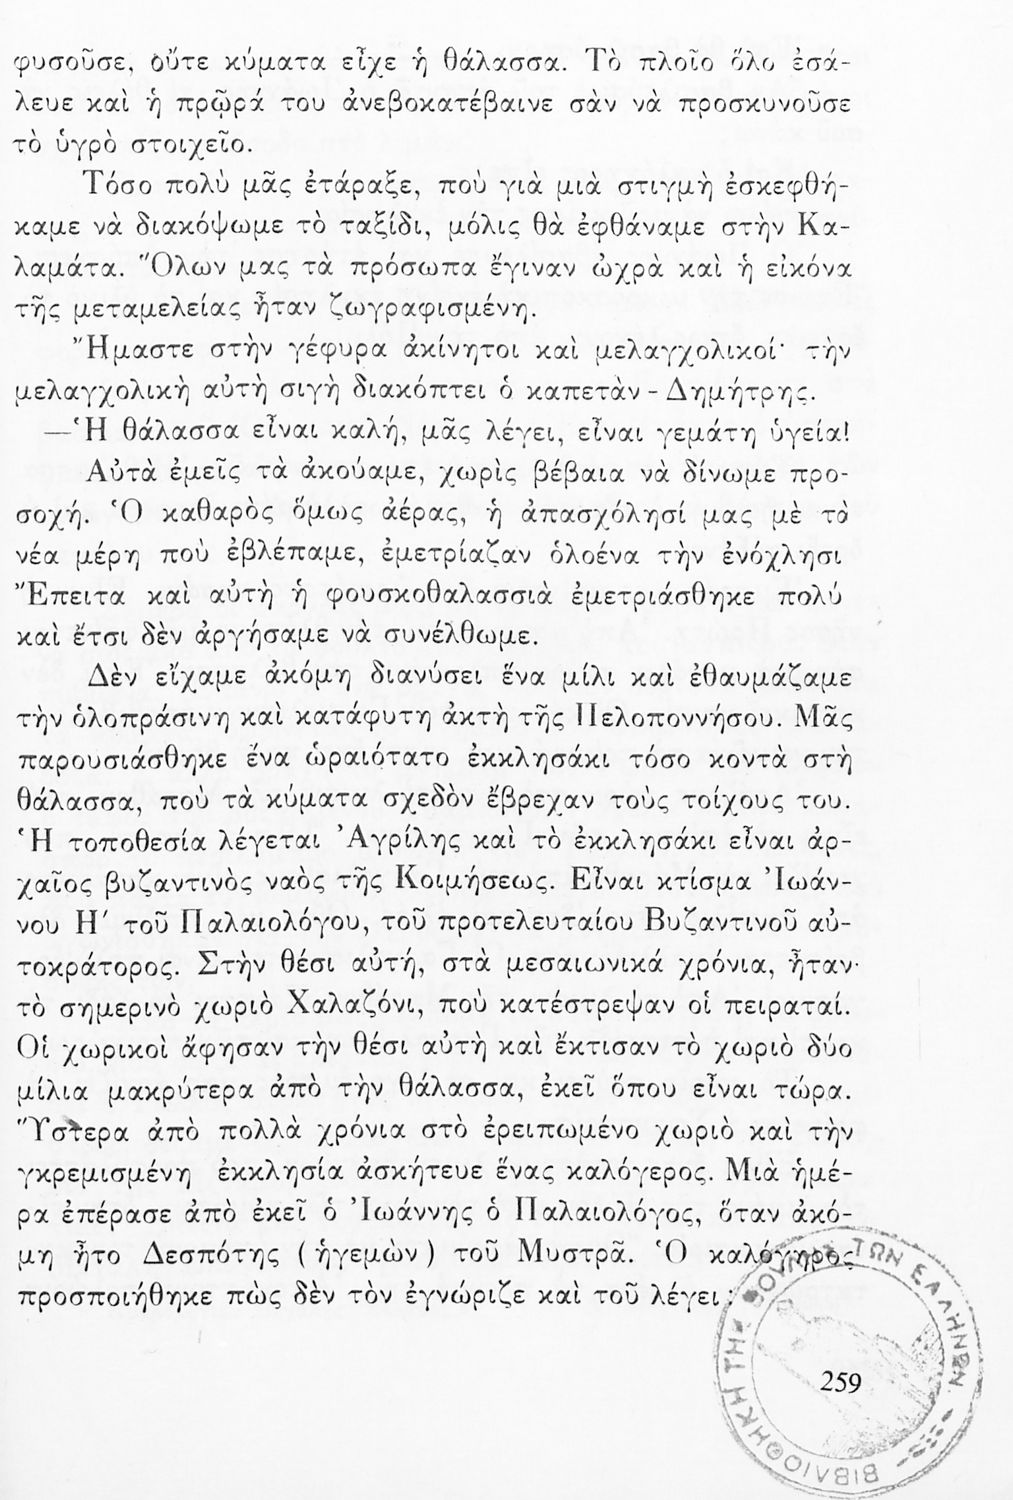 φυσοῦσε, οὔτε κύματα εἶχε ἡ θάλασσα. Τὸ πλοῖο ὅλο ἐσά-
λευε καὶ ἡ πρῷρά του ἀνεβοκατέβαινε σὰν νὰ προσκυνοῦσε
τὸ ὑγρὸ στοιχεῖο.
Τόσο πολὺ μᾶς ἐτάραξε, ποὺ γιὰ μιὰ στιγμὴ ἐσκεφθή-
καμε νὰ διακόψωμε τὸ ταξίδι, μόλις θὰ ἐφθάναμε στὴν Κα-
λαμάτα. Ὅλων μας τὰ πρόσωπα ἔγιναν ὠχρὰ καὶ ἡ εἰκόνα
τῆς μεταμελείας ἦταν ζωγραφισμένη.
Ἤμαστε στὴν γέφυρα ἀκίνητοι καὶ μελαγχολικοί· τὴν
μελαγχολικὴ αὐτὴ σιγὴ διακόπτει ὁ καπετὰν - Δημήτρης.
—Ἡ θάλασσα εἶναι καλή, μᾶς λέγει, εἶναι γεμάτη ὑγεία!
Αὐτὰ ἐμεῖς τὰ ἀκούαμε, χωρὶς βέβαια νὰ δίνωμε προ-
σοχή. Ὁ καθαρὸς ὅμως ἀέρας, ἡ ἀπασχόλησί μας μὲ τὰ
νέα μέρη ποὺ ἐβλέπαμε, ἐμετρίαζαν ὁλοένα τὴν ἐνόχλησι
Ἔπειτα καὶ αὐτὴ ἡ φουσκοθαλασσιὰ ἐμετριάσθηκε πολύ
καὶ ἔτσι δὲν ἀργήσαμε νὰ συνέλθωμε.
Δὲν εἴχαμε ἀκόμη διανύσει ἕνα μίλι καὶ ἐθαυμάζαμε
τὴν ὁλοπράσινη καὶ κατάφυτη ἀκτὴ τῆς Πελοποννήσου. Μᾶς
παρουσιάσθηκε ἕνα ὡραιότατο ἐκκλησάκι τόσο κοντὰ στὴ
θάλασσα, ποὺ τὰ κύματα σχεδὸν ἔβρεχαν τοὺς τοίχους του.
Ἡ τοποθεσία λέγεται Ἀγρίλης καὶ τὸ ἐκκλησάκι εἶναι ἀρ-
χαῖος βυζαντινὸς ναὸς τῆς Κοιμήσεως. Εἶναι κτίσμα Ἰωάν-
νου Η΄ τοῦ Παλαιολόγου, τοῦ προτελευταίου Βυζαντινοῦ αὐ-
τοκράτορος. Στὴν θέσι αὐτή, στὰ μεσαιωνικά χρόνια, ἦταν
τὸ σημερινὸ χωριὸ Χαλαζόνι, ποὺ κατέστρεψαν οἱ πειραταί.
Οἱ χωρικοὶ ἄφησαν τὴν θέσι αὐτὴ καὶ ἔκτισαν τὸ χωριὸ δύο
μίλια μακρύτερα ἀπὸ τὴν θάλασσα, ἐκεῖ ὅπου εἶναι τώρα.
Ὕστερα ἀπὸ πολλὰ χρόνια στὸ ἐρειπωμένο χωριὸ καὶ τὴν
γκρεμισμένη ἐκκλησία ἀσκήτευε ἕνας καλόγερος. Μιὰ ἡμέ-
ρα ἐπέρασε ἀπὸ ἐκεῖ ὁ Ἰωάννης ὁ Παλαιολόγος, ὅταν ἀκό-
μη ἦτο Δεσπότης (ἡγεμὼν) τοῦ Μυστρᾶ. Ὁ καλόγηρος
προσποιήθηκε πὼς δὲν τὸν ἐγνώριζε καὶ τοῦ λέγει:
ΒΙΒΛΙΟΘΗΚΗ ΤΗΣ ΒΟΥΛΗΣ ΤΩΝ ΕΛΛΗΝΩΝ
259